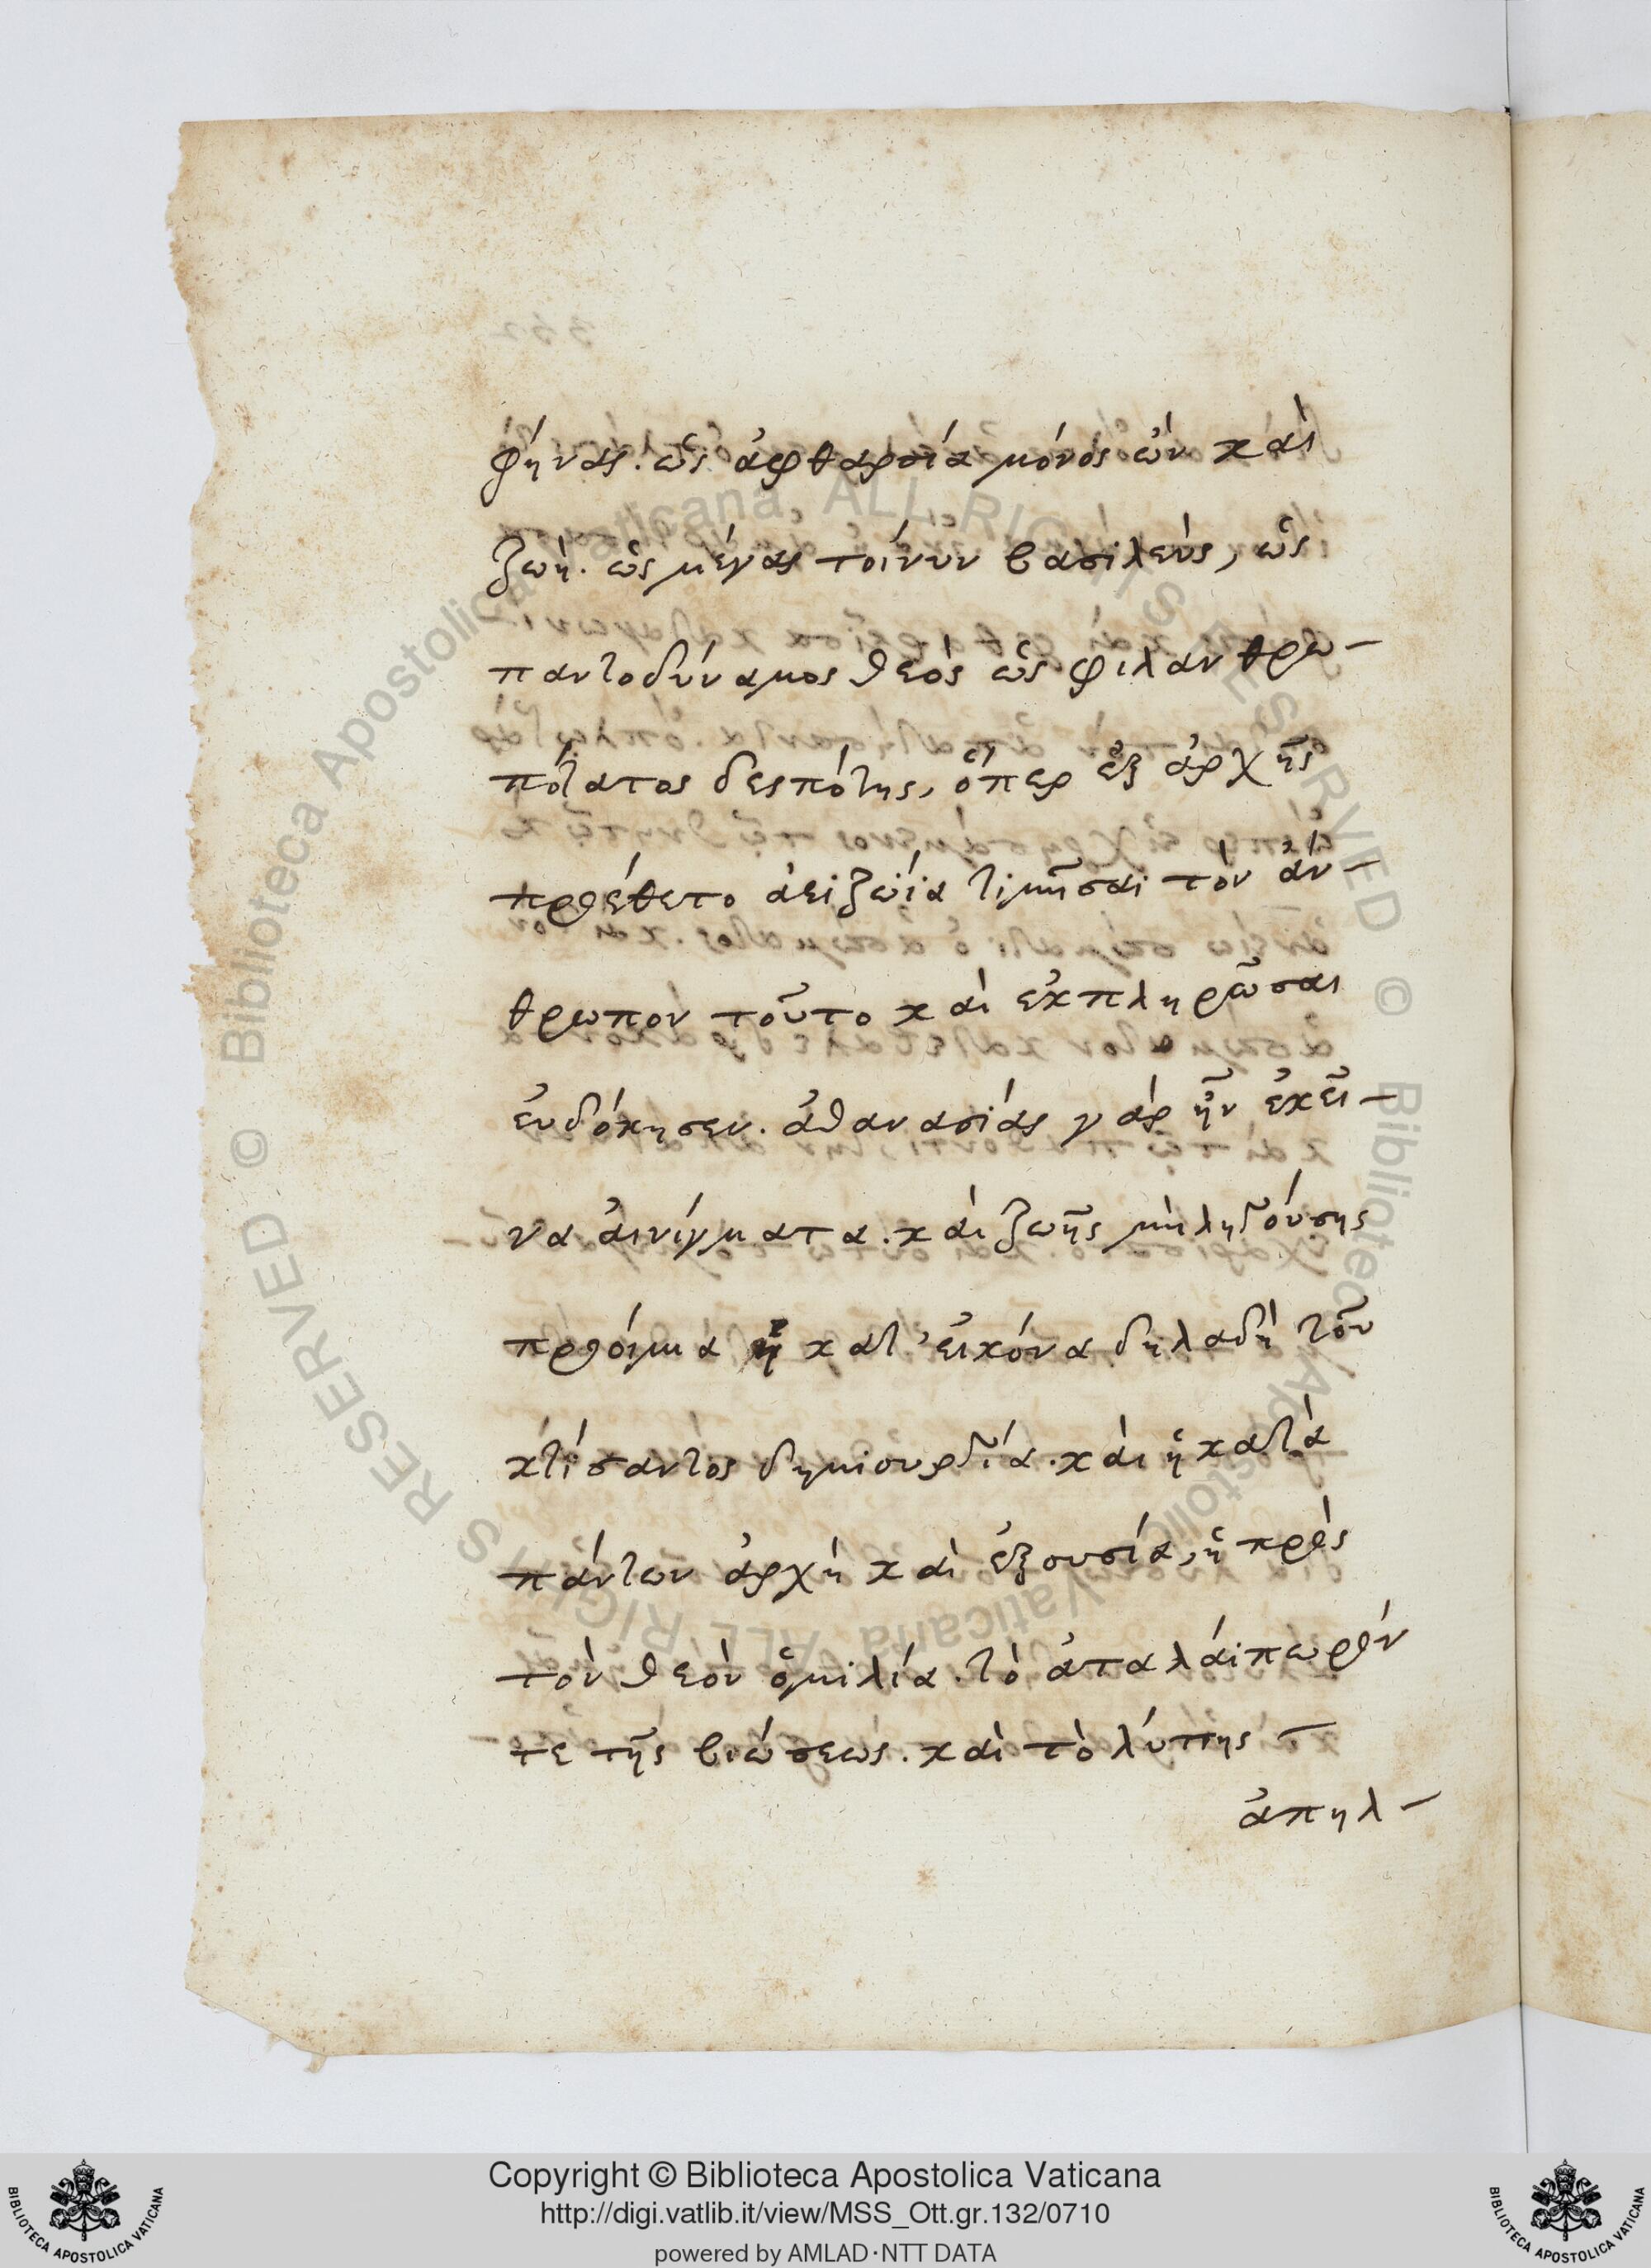 φήνας. ὡς ἀφθαρσία μόνος ὢν καὶ
ζωή. ὡς μέγας τοίνυν βασιλεὺς, ὡς
παντοδύναμος θεὸς ὡς φιλανθρω-
πότατος δεσπότης, ὅπερ ἐξ ἀρχῆς
προέθετο ἀειζωΐα τιμῆσαι τὸν ἄν-
θρωπον τοῦτο καὶ ἐκπληρῶσαι
ἐυδόκησεν. ἀθανασίας γὰρ ἦν ἐκεῖ-
να ἀινίγματα. καὶ ζωῆς μὴ ληγούσης
προοίμια ἡ κατ' εἰκόνα δηλαδὴ τοῦ
κτίσαντος δημιουργία. καὶ ἡ κατὰ
πάντων ἀρχὴ καὶ ἐξουσία, ἡ πρὸς
τὸν θεὸν ὁμιλία. τὸ ἀταλάιπωρόν
τε τῆς βιώσεως. καὶ τὸ λύπης
ἀπηλ-
Copyright © Biblioteca Apostolica Vaticana
http://digi.vatlib.it/view/MSS_Ott.gr.132/0710
powered by AMLAD·NTT DATA
BIBLIOTECA APOSTOLICA VATICANA
BIBLIOTECA APOSTOLICA VATICANA
© Biblioteca Apostolica Vaticana ALL RIGHTS RESERVED
© Biblioteca Apostolica Vaticana ALL RIGHTS RESERVED